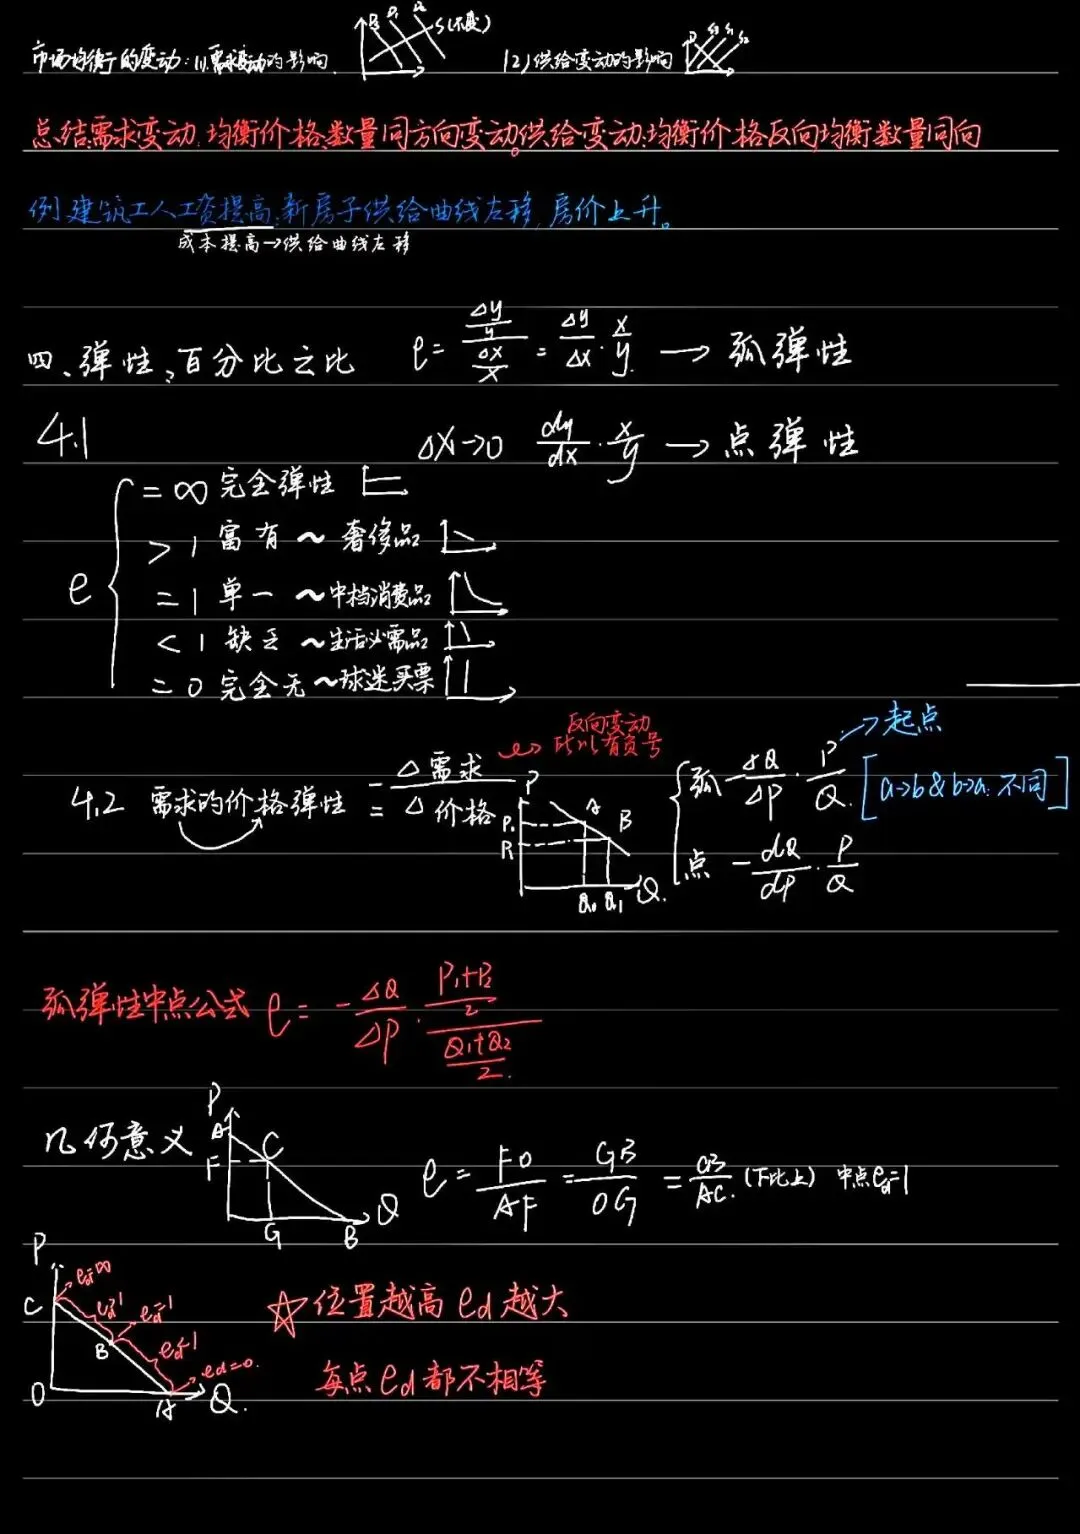 市场均衡的变动:(1)需求变动的影响 S(不变) (2)供给变动的影响
总结:需求变动:均衡价格、数量同方向变动。供给变动:均衡价格反向,均衡数量同向
例 建筑工人工资提高,新房子供给曲线左移,房价上升。
成本提高→供给曲线左移
四、弹性、百分比之比 e = (Δy/y)/(Δx/x) = Δy/Δx · x/y → 弧弹性
4.1 Δx→0 dy/dx · x/y → 点弹性
e
= ∞ 完全弹性
> 1 富有 ~ 奢侈品
= 1 单一 ~ 中档消费品
< 1 缺乏 ~ 生活必需品
= 0 完全无 ~ 球迷买票
反向变动
所以有负号
4.2 需求的价格弹性 = - Δ需求/Δ价格
P A B Q
弧 - ΔQ/ΔP · P/Q → 起点
[a→b & b→a 不同]
点 - dQ/dP · P/Q
弧弹性中点公式 e = - ΔQ/ΔP · ((P1+P2)/2)/((Q1+Q2)/2)
几何意义 P A F C G B Q
e = FO/AF = GB/OG = CB/AC (下比上) 中点ed=1
P C B A O Q
ed=∞
ed>1
ed=1
ed<1
ed=0
☆ 位置越高 ed 越大
每点 ed 都不相等